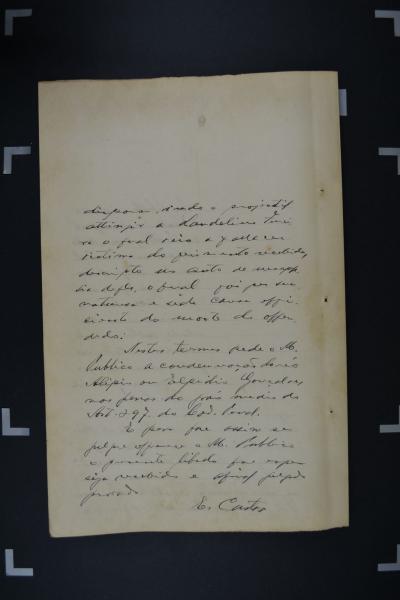 disparou, sendo o projectil
attingir a Laudelino Viei
ra o qual veio a fallecer
victima do ferimento recebido,
descripto no auto de
de fls, o qual foi por sua
natureza e séde causa effi
ciente da morte do offen
dido.
Nestes termos pede o M.
Publico a condemnação do réo
Alipio ou Elpidio Gonçalves,
nas penas do gráo medio do
Art. 297 do Cod. Penal.
E para que assim se
julgue offerece o M. Publico
o presente libello que espera
seja recebido e afinal julgado
provado.
E. Castro